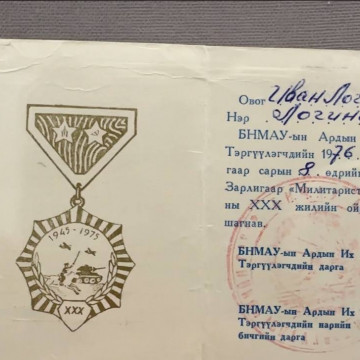 1945-1975
XXX
Овог Иван Лог
Нэр Логин
БНМАУ-ын Ардын
Тэргүүлэгчдийн 1976
гаар сарын 8. өдрийн
Зарлигаар «Милитарист
ны XXX жилийн ой
шагнав.
БНМАУ-ын Ардын Их
Тэргүүлэгчдийн дарга
БНМАУ-ын Ардын Их
Тэргүүлэгчдийн нарийн
бичгийн дарга